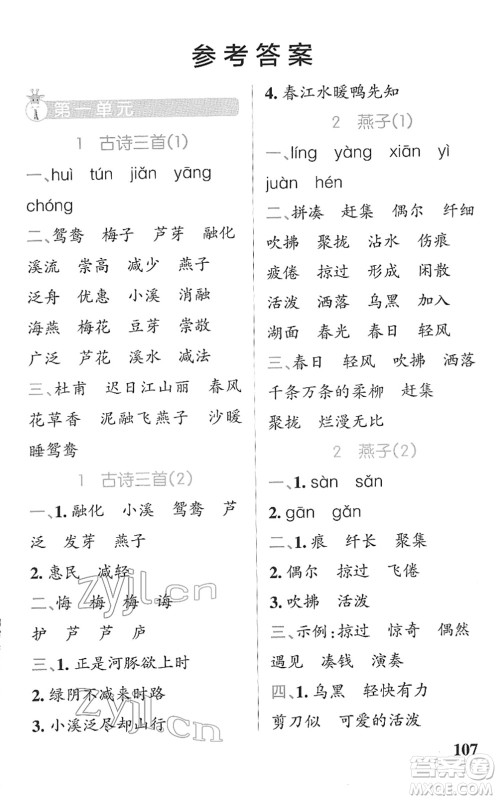 参考答案
第一单元
1 古诗三首(1)
一、huì tún jiǎn yāng
chóng
二、鸳鸯 梅子 芦芽 融化
溪流 崇高 减少 燕子
泛舟 优惠 小溪 消融
海燕 梅花 豆芽 崇敬
广泛 芦花 溪水 减法
三、杜甫 迟日江山丽 春风
花草香 泥融飞燕子 沙暖
睡鸳鸯
1 古诗三首(2)
一、1.融化 小溪 鸳鸯 芦
芽 泛 发芽 燕子
2.惠民 减轻
二、悔 梅 梅 海
护 芦 芦 庐
三、1.正是河豚欲上时
2.绿阴不减来时路
3.小溪泛尽却山行
4.春江水暖鸭先知
2 燕子(1)
一、líng yàng xiān yì
juàn hén
二、拼凑 赶集 偶尔 纤细
吹拂 聚拢 沾水 伤痕
疲倦 掠过 形成 闲散
活泼 洒落 乌黑 加入
湖面 春光 春日 轻风
三、春日 轻风 吹拂 洒落
千条万条的柔柳 赶集
聚拢 烂漫无比
2 燕子(2)
一、1.sàn sǎn
2.gān gǎn
二、1.痕 纤长 聚集
2.偶尔 掠过 飞倦
3.吹拂 活泼
三、示例:掠过 惊奇 偶然
遇见 凑钱 演奏
四、1.乌黑 轻快有力
剪刀似 可爱的活泼
107
zyjl.cn
zyjl.cn
答案圈
MXQE.COM